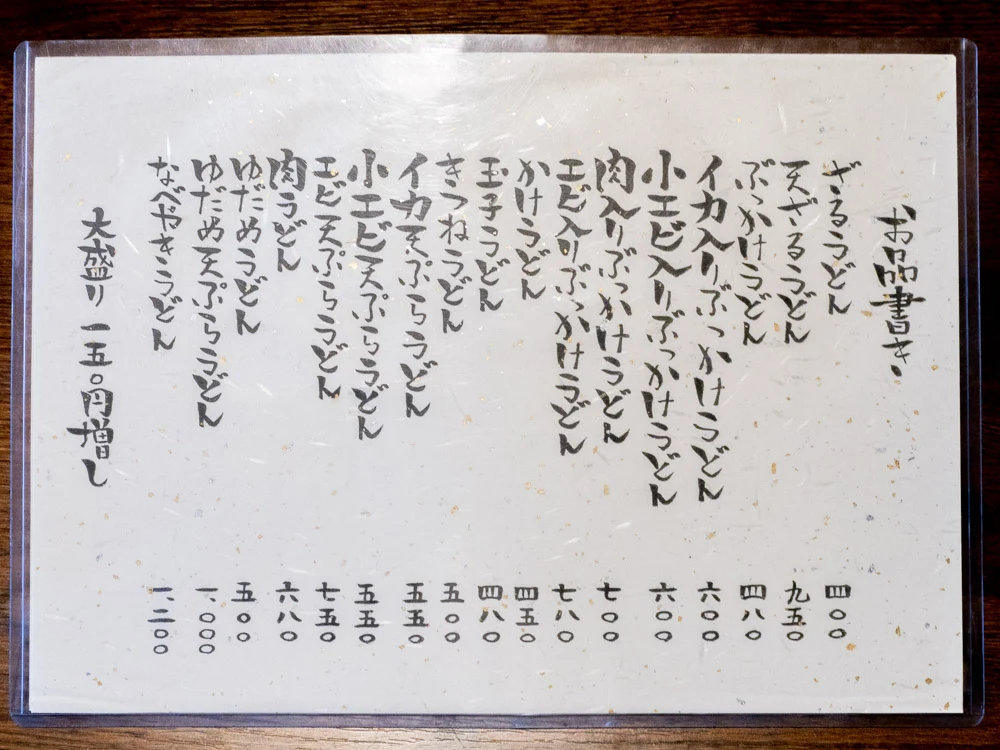 お品書き
ざるうどん 四〇〇
天ざるうどん 九五〇
ぶっかけうどん 四八〇
イカ入りぶっかけうどん 六〇〇
小エビ入りぶっかけうどん 六〇〇
肉入りぶっかけうどん 七〇〇
エビ入りぶっかけうどん 七八〇
かけうどん 四五〇
玉子うどん 四八〇
きつねうどん 五〇〇
イカ天ぷらうどん 五五〇
小エビ天ぷらうどん 五五〇
エビ天ぷらうどん 七五〇
肉うどん 六八〇
ゆだめうどん 五〇〇
ゆだめ天ぷらうどん 一、〇〇〇
なべやきうどん 一、二〇〇
大盛り 一五〇円増し